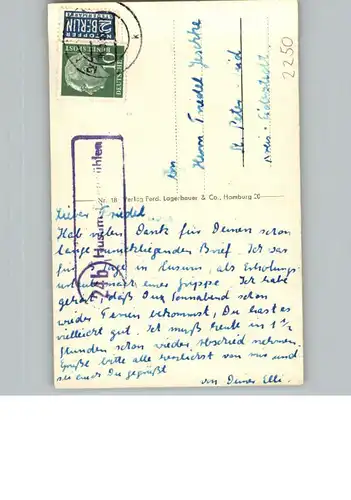 2 NOTOPFER
BERLIN
STEUERMARKE
DEUTSCHE BUNDESPOST
10
k
2250
An
Herrn Friedel Jeschke
St. Peter
Kreis Eiderstedt
(24b) Husum
Nr. 18 Verlag Ferd. Lagerbauer & Co., Hamburg 20
Lieber Friedel
Hab vielen Dank für Deinen schon
lange zurückliegenden Brief. Ich war
für Tage in Husum, als Erholungs-
urlaub nach einer Grippe. Ich habe
gehört, daß Du Sonnabend schon
wieder Ferien bekommst, Du hast es
vielleicht gut. Ich muß heute in 1 1/2
Stunden schon wieder Abschied nehmen.
Grüße bitte alle herzlichst von mir und
sei auch Du gegrüßt
von Deiner Elli.